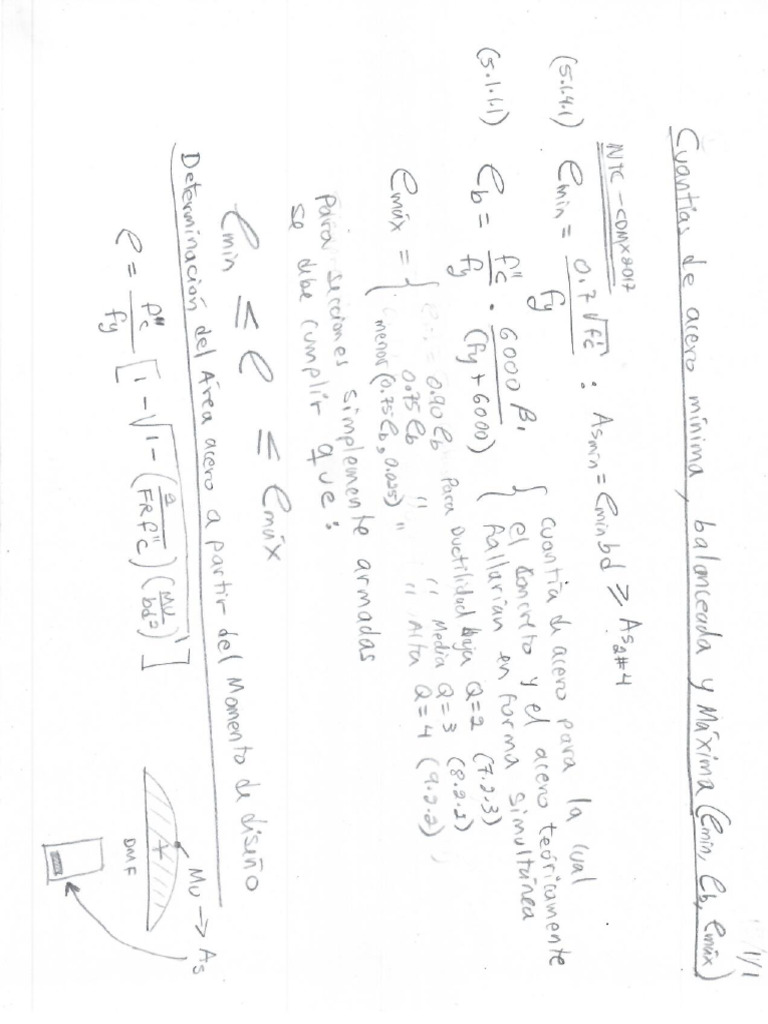 1/1
Cuantías de acero mínima, balanceada y Máxima (ρmin, ρb, ρmáx)
NTC - CDMX2017
(5.1.4.1) ρmin = 0.7√f'c / fy : Asmin = ρmin bd ≥ As2#4
(5.1.1.1) ρb = f''c / fy · 6000 β1 / (fy + 6000) { cuantía de acero para la cual
el concreto y el acero teóricamente
fallarían en forma simultánea
ρmáx = { 0.90 ρb para Ductilidad baja Q=2 (7.2.3)
0.75 ρb " " Media Q=3 (8.2.2)
menor (0.75 ρb, 0.025) " " Alta Q=4 (9.2.2)
Para secciones simplemente armadas
se debe cumplir que:
ρmin ≤ ρ ≤ ρmáx
Determinación del Área acero a partir del Momento de diseño
ρ = f''c / fy [1 - √1 - (2 / FR f''c) (Mu / bd²)]
+
Mu → As
DMF